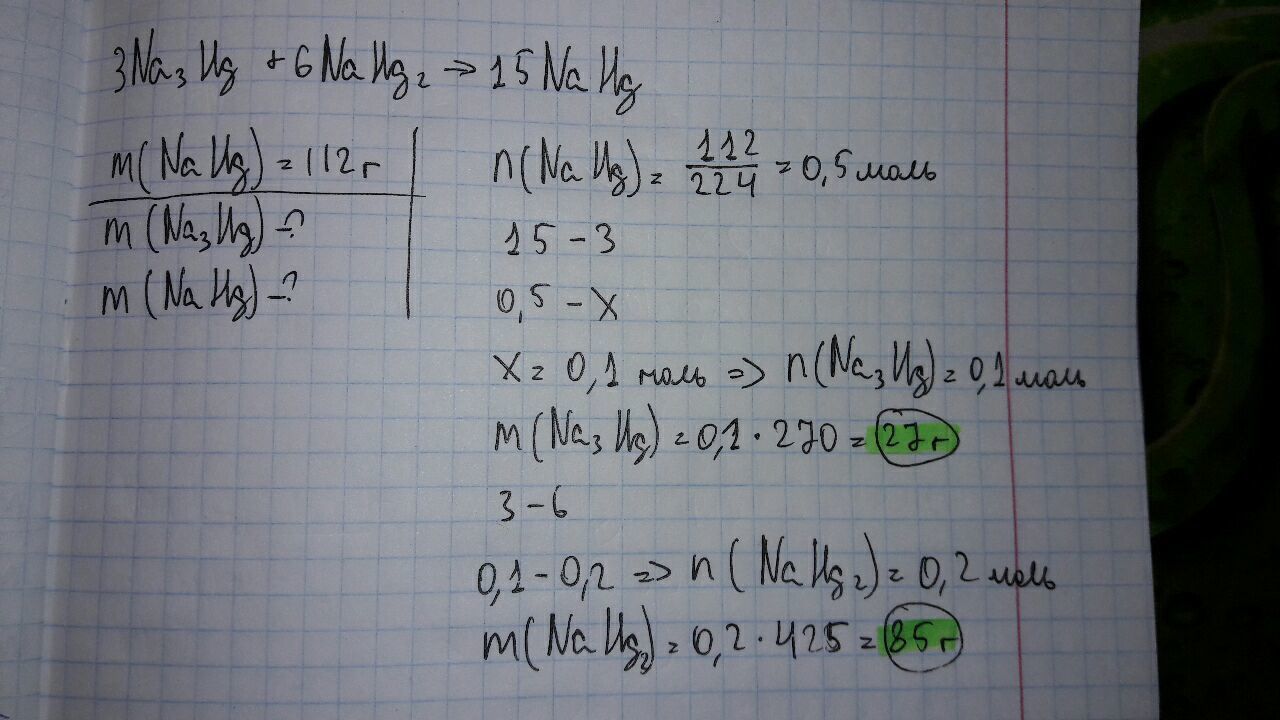 3Na₃Hg + 6NaHg₂ → 15NaHg
m(NaHg) = 112г
m(Na₃Hg) - ?
m(NaHg) - ?
n(NaHg) = 112/224 = 0,5 моль
15 - 3
0,5 - X
X = 0,1 моль => n(Na₃Hg) = 0,1 моль
m(Na₃Hg) = 0,1 · 270 = 27г
3 - 6
0,1 - 0,2 => n(NaHg₂) = 0,2 моль
m(NaHg₂) = 0,2 · 425 = 85г